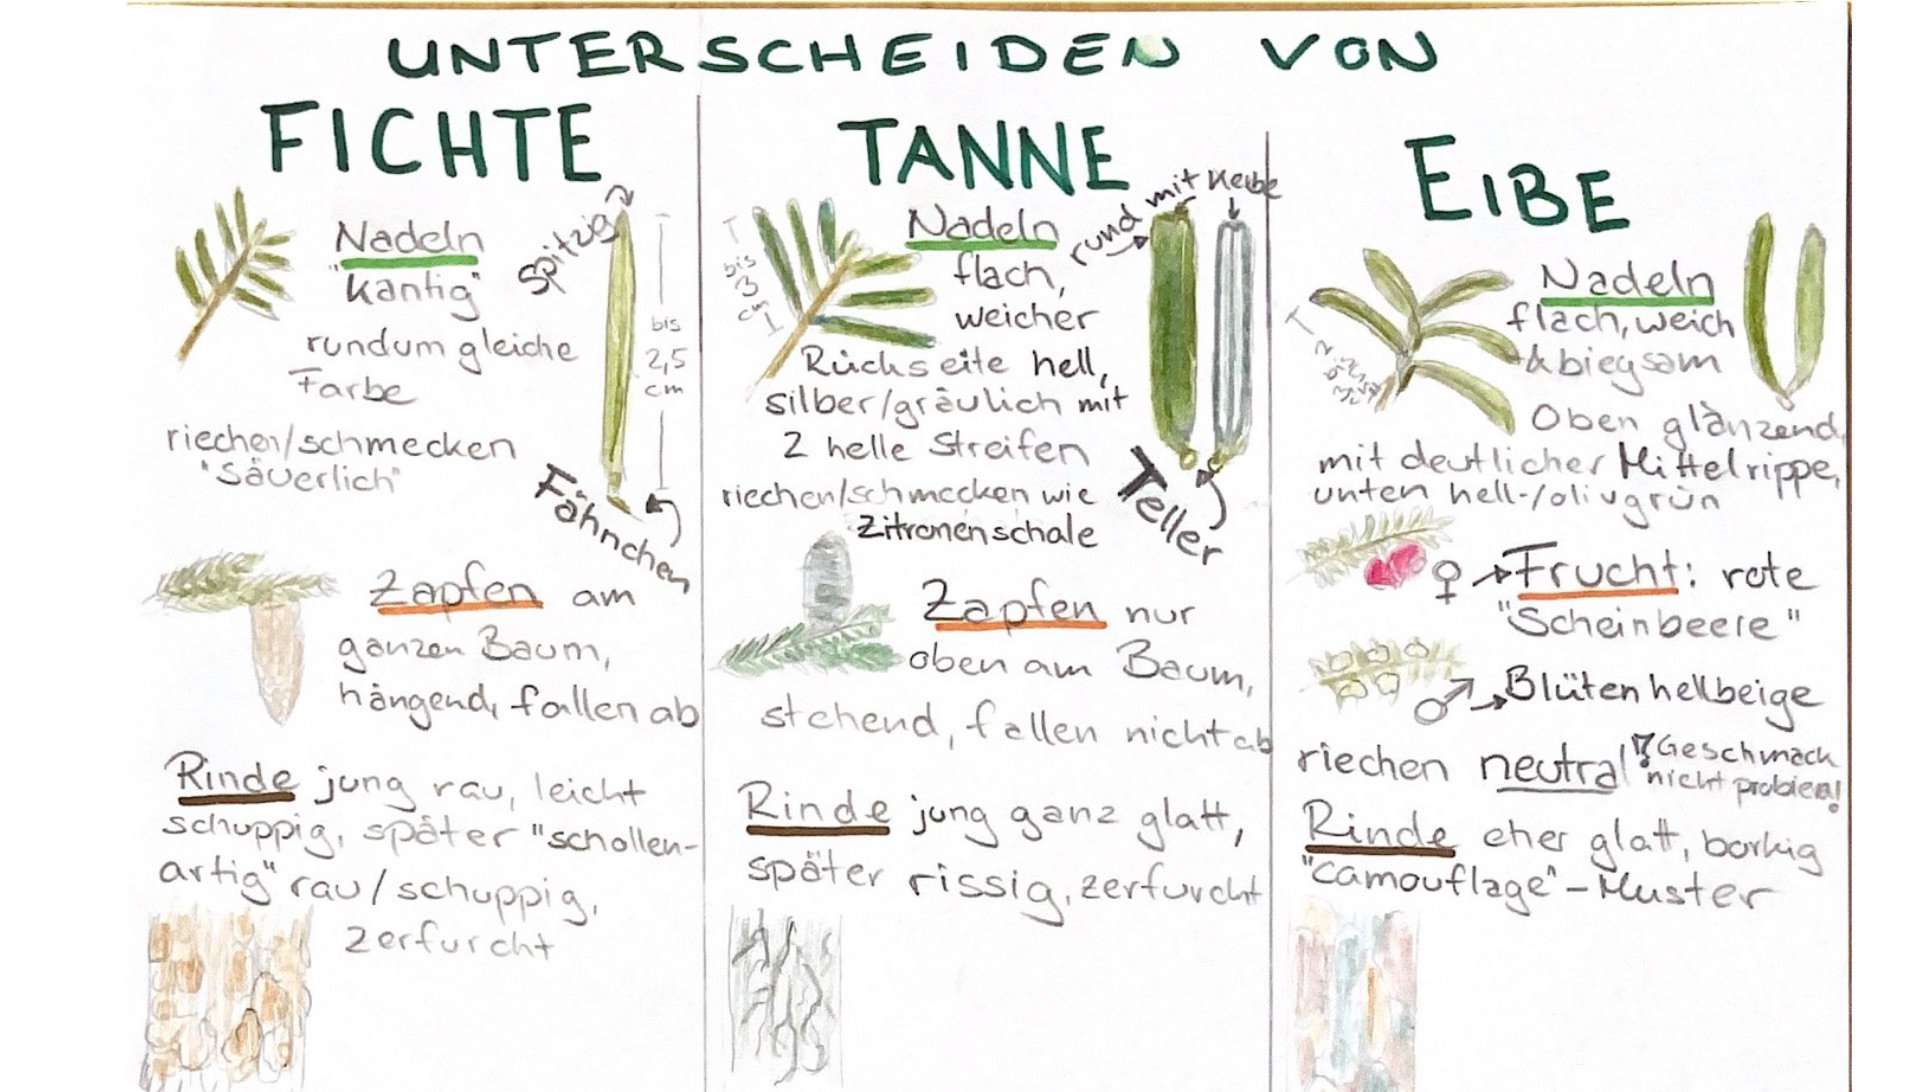 UNTERSCHEIDEN VON
FICHTE
Nadeln
"kantig"
rundum gleiche
Farbe
spitzig
bis
2,5
cm
riechen/schmecken
"säuerlich"
Fähnchen
Zapfen am
ganzen Baum,
hängend, fallen ab
Rinde jung rau, leicht
schuppig, später "schollen-
artig" rau/schuppig,
zerfurcht
TANNE
rund mit Kerbe
bis
3
cm
Nadeln
flach,
weicher
Rückseite hell,
silber/gräulich mit
2 helle Streifen
riechen/schmecken wie
Zitronenschale
Teller
Zapfen nur
oben am Baum,
stehend, fallen nicht ab
Rinde jung ganz glatt,
später rissig, zerfurcht
EIBE
Nadeln
flach, weich
& biegsam
2
bis
Oben glänzend,
mit deutlicher Mittelrippe,
unten hell-/olivgrün
♀ → Frucht: rote
"Scheinbeere"
♂ → Blüten hellbeige
riechen neutral ! Geschmack
nicht probieren!
Rinde eher glatt, borkig
"camouflage"-Muster